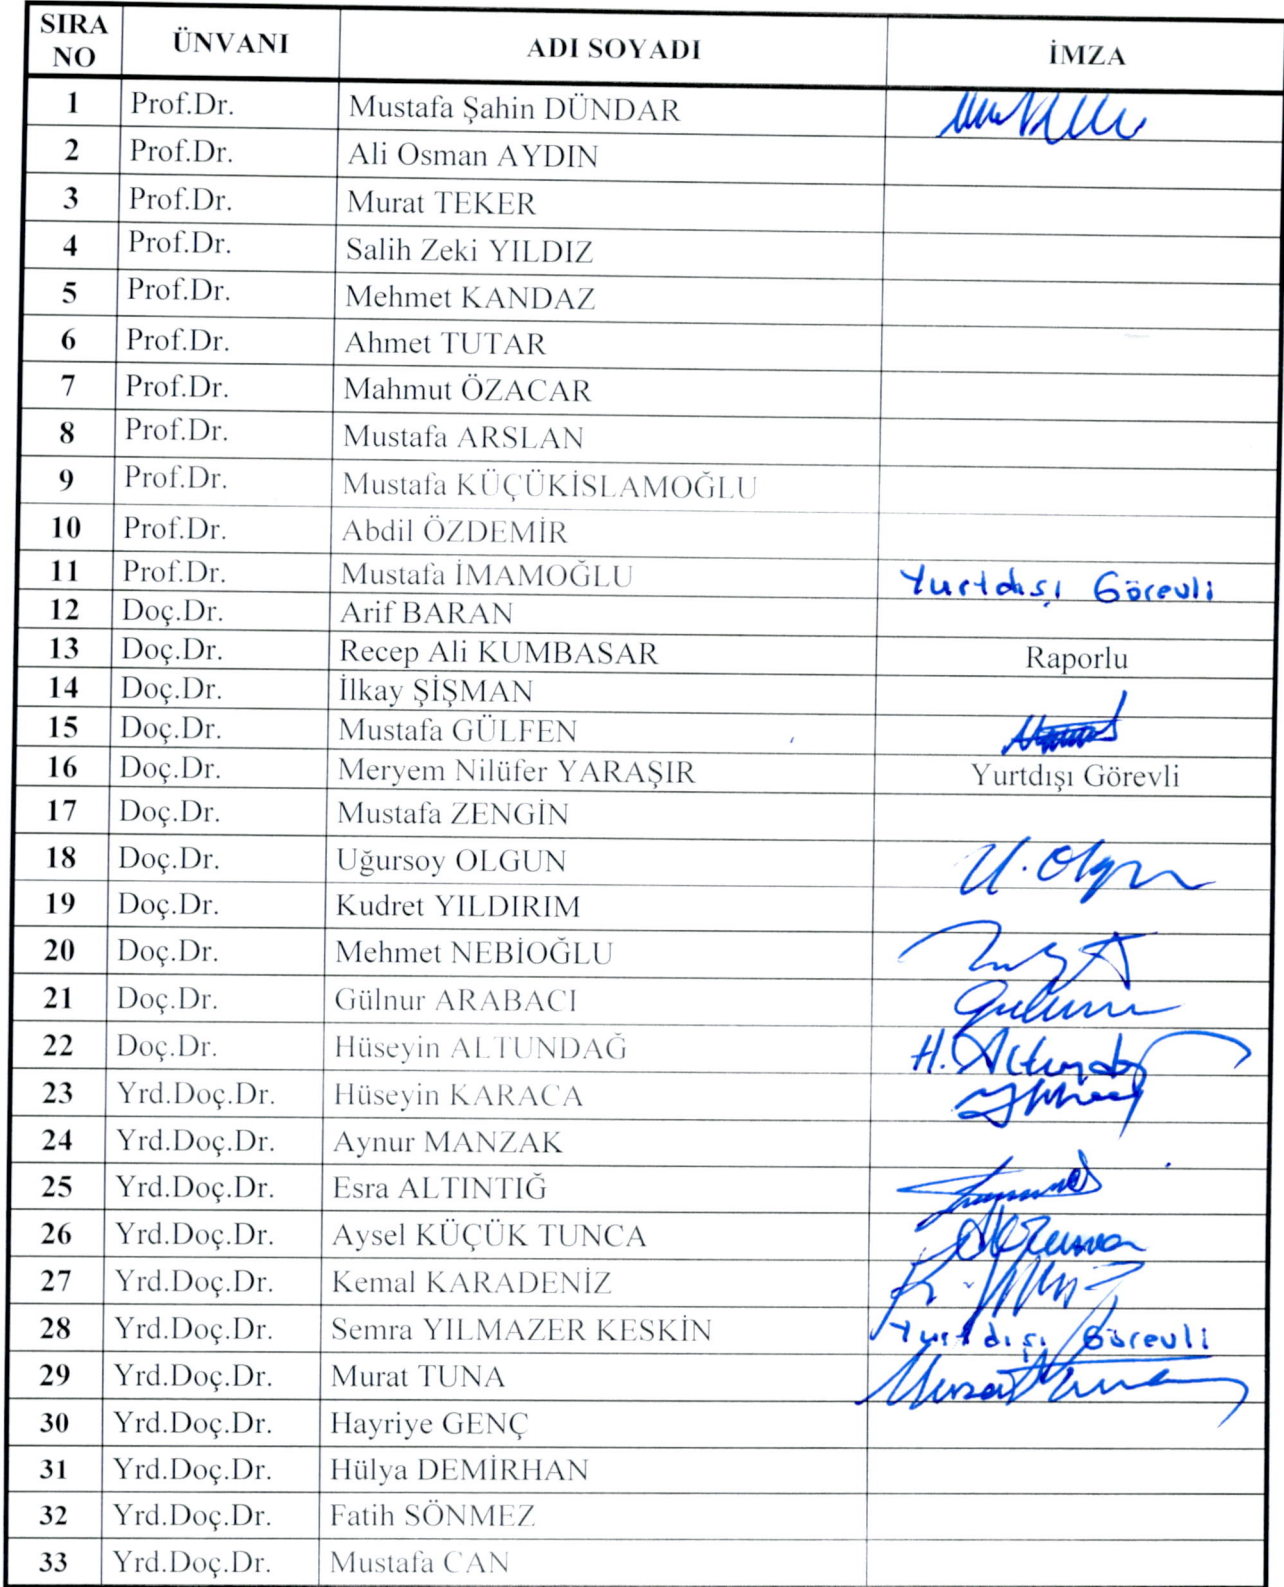 SIRA NO ÜNVANI ADI SOYADI İMZA
1 Prof.Dr. Mustafa Şahin DÜNDAR
2 Prof.Dr. Ali Osman AYDIN
3 Prof.Dr. Murat TEKER
4 Prof.Dr. Salih Zeki YILDIZ
5 Prof.Dr. Mehmet KANDAZ
6 Prof.Dr. Ahmet TUTAR
7 Prof.Dr. Mahmut ÖZACAR
8 Prof.Dr. Mustafa ARSLAN
9 Prof.Dr. Mustafa KÜÇÜKİSLAMOĞLU
10 Prof.Dr. Abdil ÖZDEMİR
11 Prof.Dr. Mustafa İMAMOĞLU Yurtdışı Görevli
12 Doç.Dr. Arif BARAN
13 Doç.Dr. Recep Ali KUMBASAR Raporlu
14 Doç.Dr. İlkay ŞİŞMAN
15 Doç.Dr. Mustafa GÜLFEN
16 Doç.Dr. Meryem Nilüfer YARAŞIR Yurtdışı Görevli
17 Doç.Dr. Mustafa ZENGİN
18 Doç.Dr. Uğursoy OLGUN U. Olgun
19 Doç.Dr. Kudret YILDIRIM
20 Doç.Dr. Mehmet NEBİOĞLU
21 Doç.Dr. Gülnur ARABACI
22 Doç.Dr. Hüseyin ALTUNDAĞ H. Altundağ
23 Yrd.Doç.Dr. Hüseyin KARACA
24 Yrd.Doç.Dr. Aynur MANZAK
25 Yrd.Doç.Dr. Esra ALTINTIĞ
26 Yrd.Doç.Dr. Aysel KÜÇÜK TUNCA
27 Yrd.Doç.Dr. Kemal KARADENİZ
28 Yrd.Doç.Dr. Semra YILMAZER KESKİN Yurtdışı Görevli
29 Yrd.Doç.Dr. Murat TUNA Murat Tuna
30 Yrd.Doç.Dr. Hayriye GENÇ
31 Yrd.Doç.Dr. Hülya DEMİRHAN
32 Yrd.Doç.Dr. Fatih SÖNMEZ
33 Yrd.Doç.Dr. Mustafa CAN